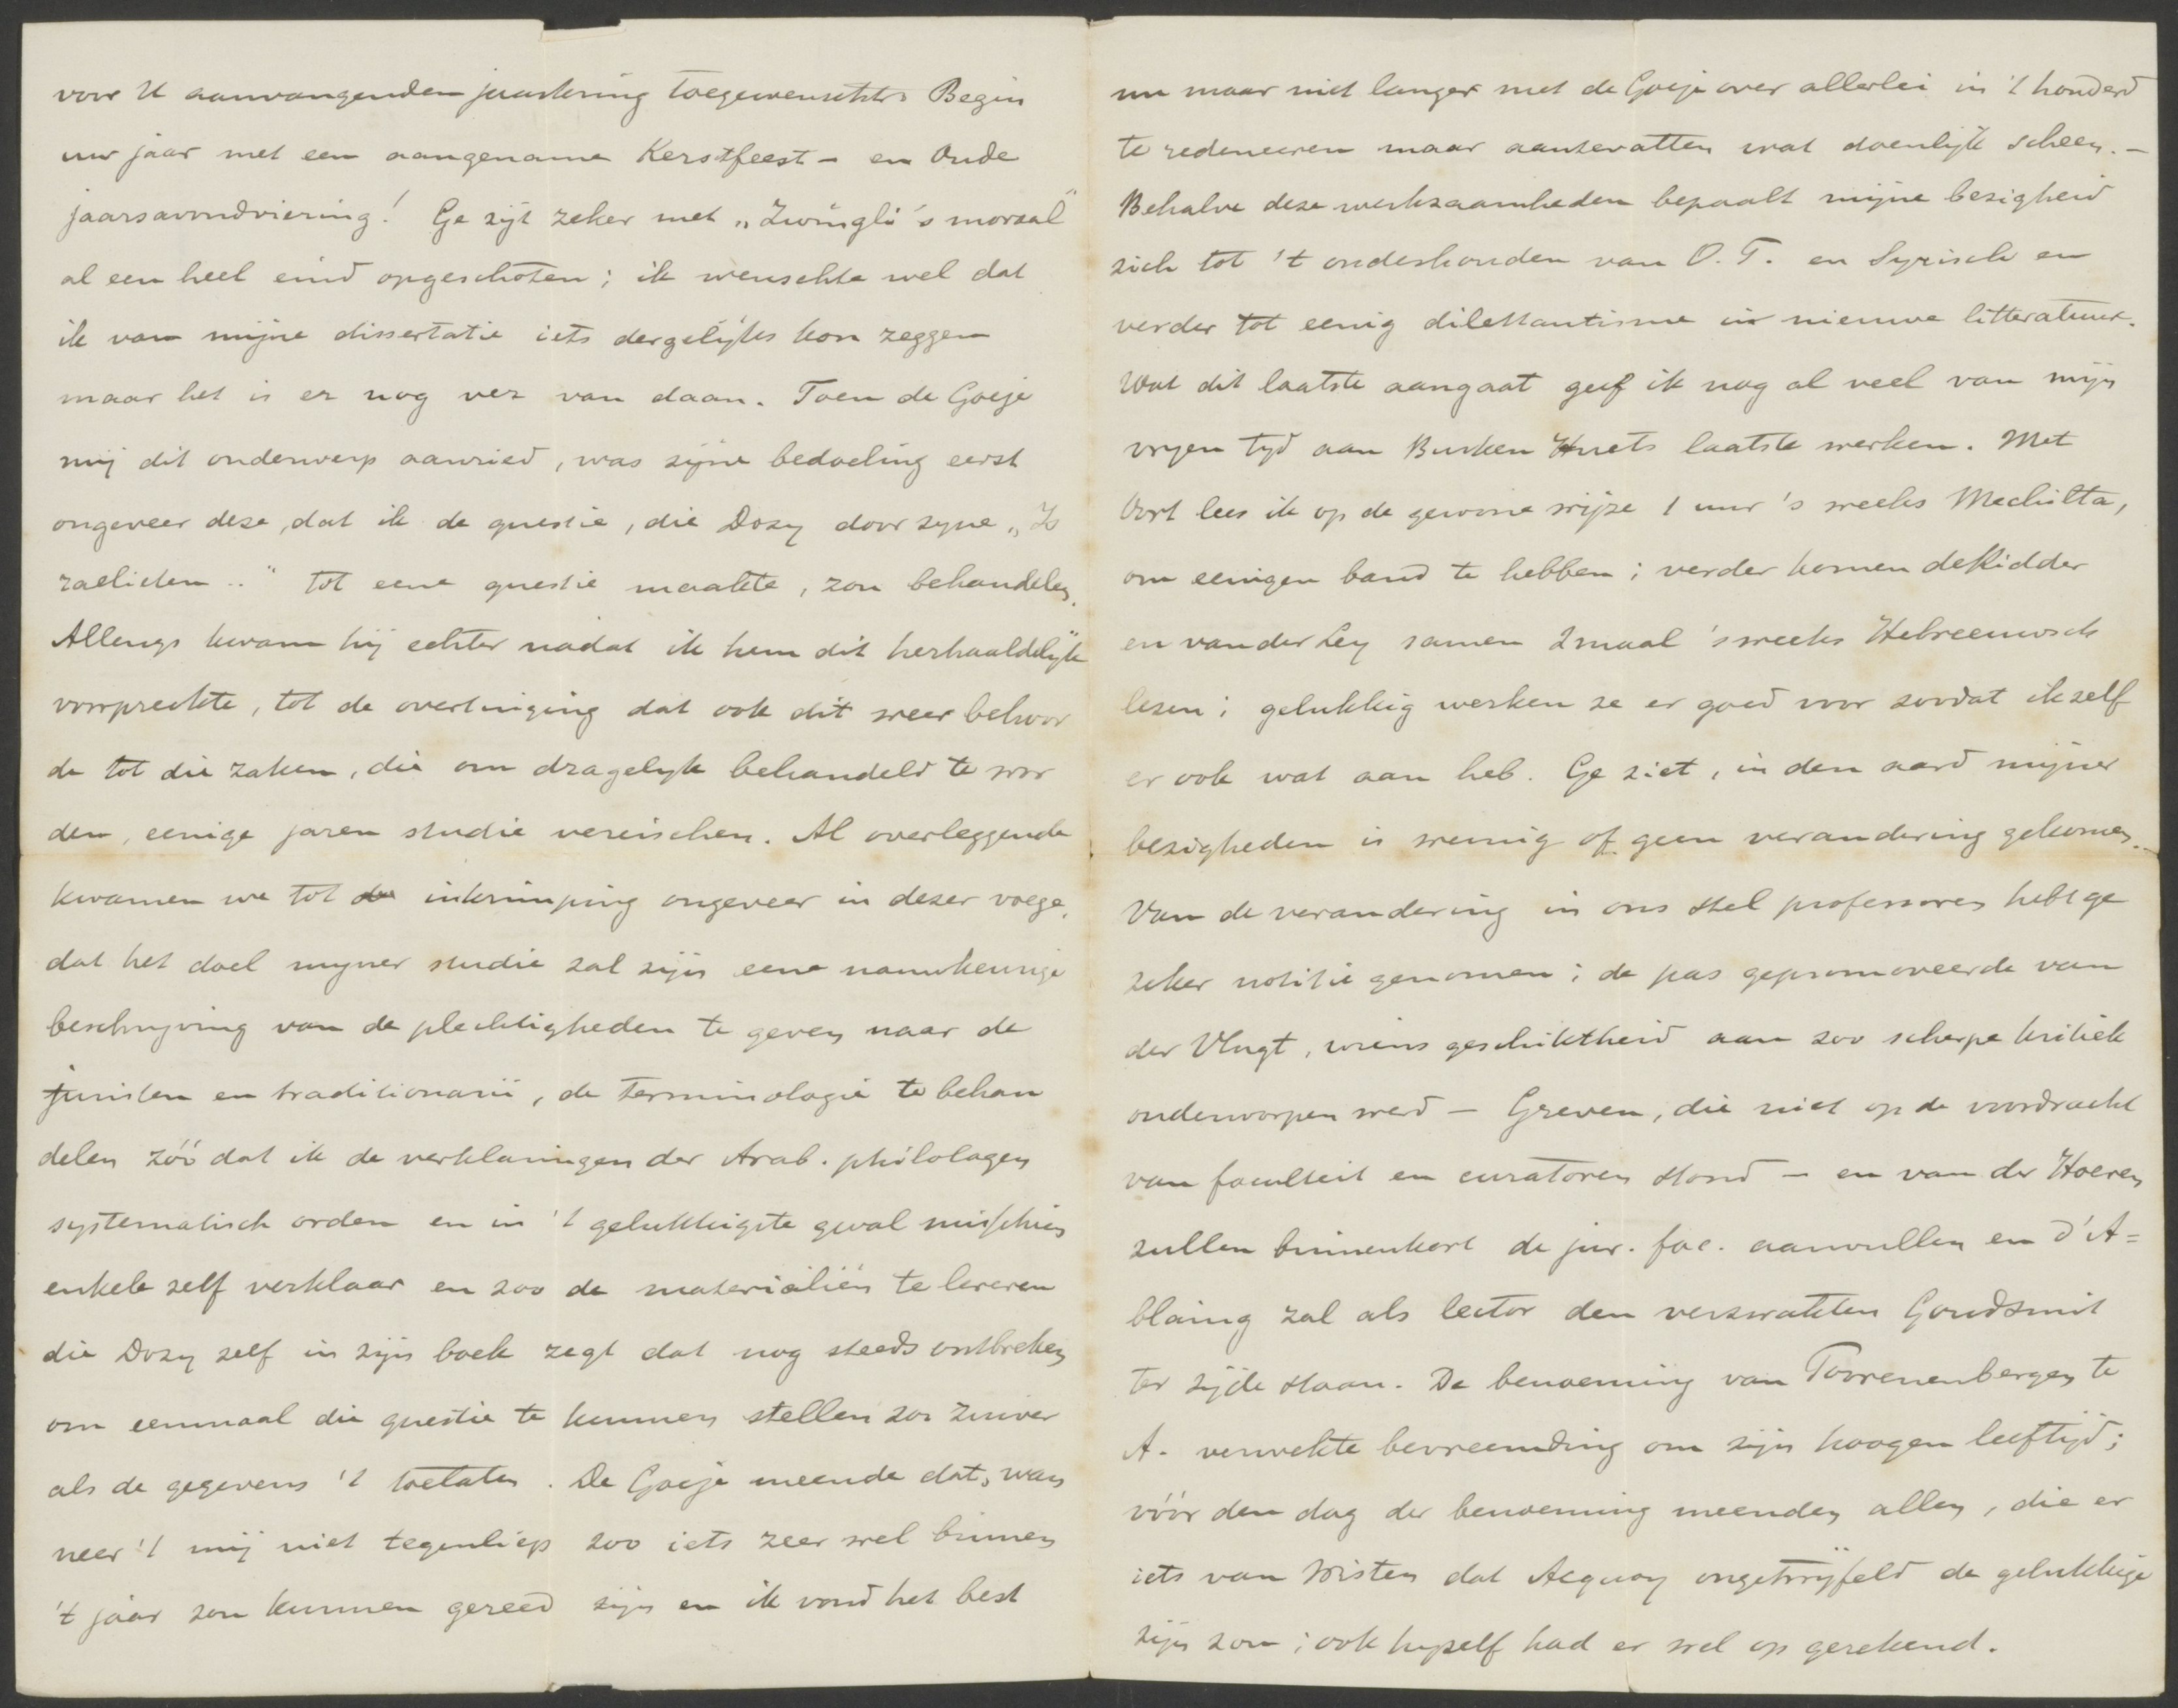 voor U aanvangenden jaarkring toegewenschte Begin
uw jaar met een aangename Kerstfeest - en Oude
jaarsavondviering! Ge zijt zeker met „Zwingli's moraal"
al een heel eind opgeschoten; ik wenschte wel dat
ik van mijne dissertatie iets dergelijks kon zeggen
maar het is er nog ver van daan. Toen de Goeje
mij dit onderwerp aanried, was zijne bedoeling eerst
ongeveer deze, dat ik de questie, die Dozy door zyne „Is
raelieten .." tot eene questie maakte, zou behandelen.
Allengs kwam hij echter nadat ik hem dit herhaaldelijk
voorpreekte, tot de overtuiging dat ook dit weer behoor
de tot die zaken, die om dragelyk behandeld te wor
den, eenige jaren studie vereischen. Al overleggende
kwamen we tot de inkrimping ongeveer in dezer voege,
dat het doel myner studie zal zijn eene nauwkeurige
beschryving van de plechtigheden te geven naar de
juristen en traditionarii, de terminologie te behan
delen zóó dat ik de verklaringen der Arab. philologen
systematisch orden en in 't gelukkigste geval misschien
enkele zelf verklaar en zoo de materialiën te leveren
die Dozy zelf in zijn boek zegt dat nog steeds ontbreken
om eenmaal die questie te kunnen stellen zoo zuiver
als de gegevens 't toelaten. De Goeje meende dat, wan
neer 't mij niet tegenliep zoo iets zeer wel binnen
't jaar zou kunnen gereed zijn en ik vond het best
nu maar niet langer met de Goeje over allerlei in 't honderd
te redeneeren maar aantevatten wat doenlijk scheen. -
Behalve deze werkzaamheden bepaalt mijne bezigheid
zich tot 't onderhouden van O. T. en Syrisch en
verder tot eenig dilettantisme in nieuwe litteratuur.
Wat dit laatste aangaat geef ik nog al veel van mijn
vryen tyd aan Busken Huets laatste werken. Met
Oort lees ik op de gewone wijze 1 uur 's weeks Mechilta,
om eenigen band te hebben; verder komen de Ridder
en van der Ley samen 2 maal 's weeks Hebreeuwsch
lezen; gelukkig werken ze er goed voor zoodat ik zelf
er ook wat aan heb. Ge ziet, in den aard mijner
bezigheden is weinig of geen verandering gekomen. -
Van de verandering in ons stel professoren hebt ge
zeker notitie genomen; de pas gepromoveerde van
der Vlugt, wiens geschiktheid aan zoo scherpe kritiek
onderworpen werd - Greven, die niet op de voordracht
van faculteit en curatoren stond - en van der Hoeven
zullen binnenkort de jur. fac. aanvullen en d'A=
blaing zal als lector den verzwakten Goudsmit
ter zijde staan. De benoeming van Toorenenbergen te
A. verwekte bevreemding om zijn hoogen leeftijd;
vóór den dag der benoeming meenden allen, die er
iets van wisten dat Acquoy ongetwijfeld de gelukkige
zijn zou; ook hyzelf had er wel op gerekend.